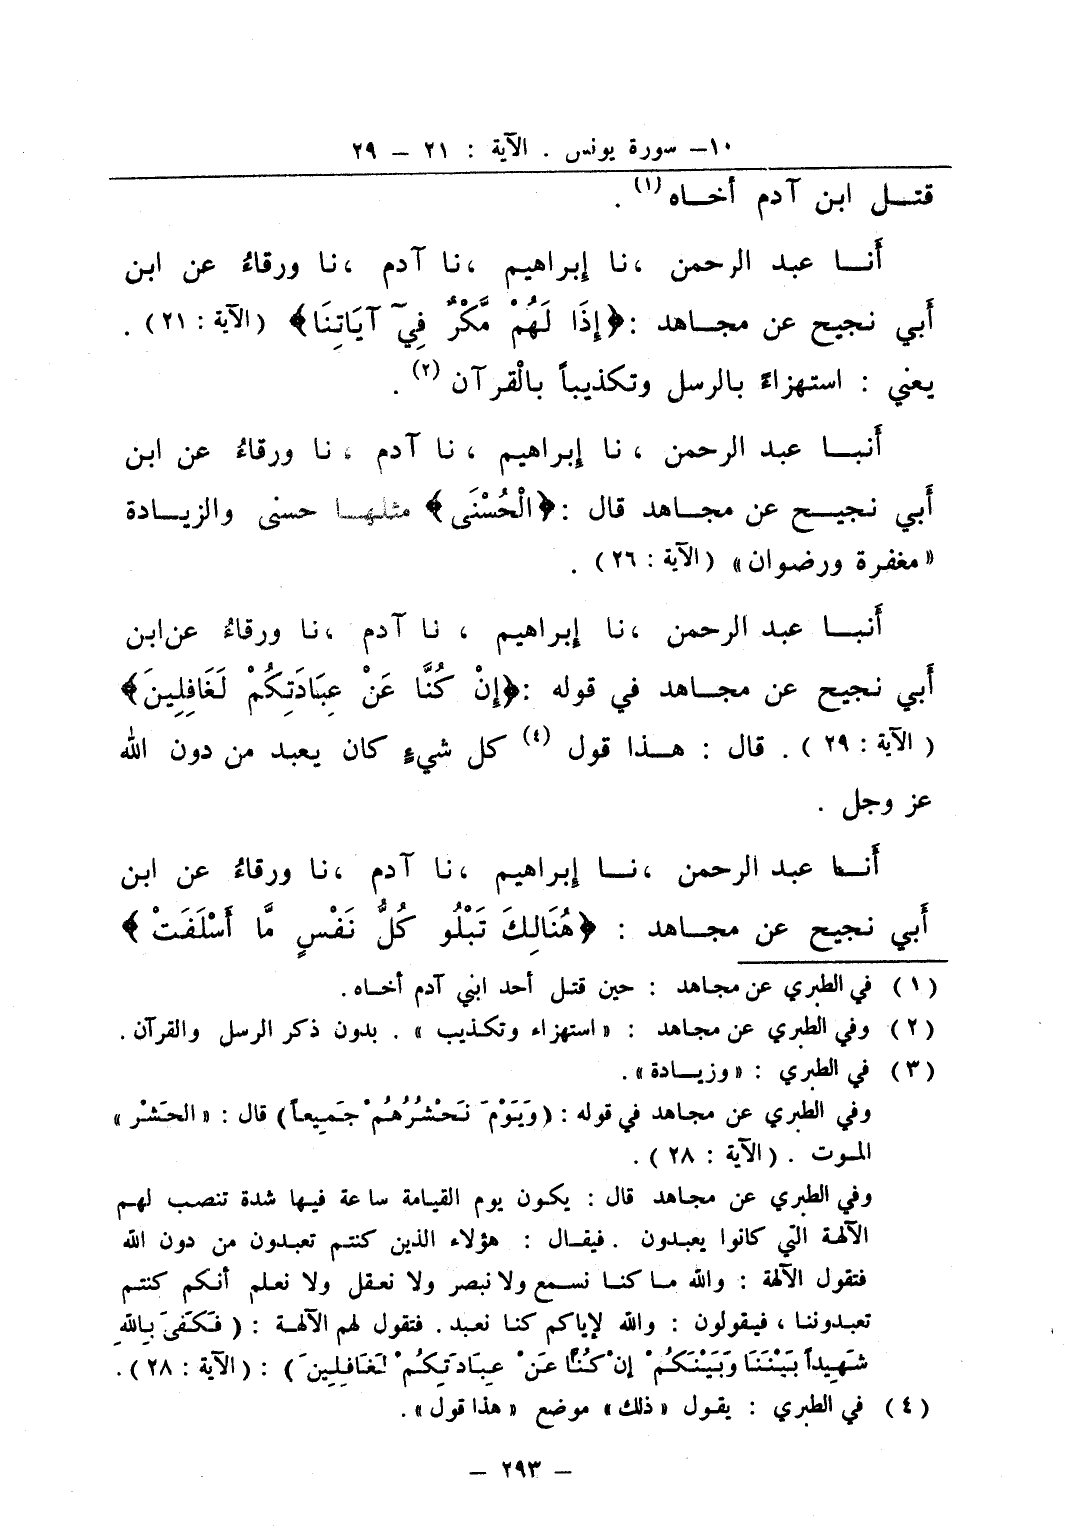 ١٠- سورة يونس . الآية : ٢١ - ٢٩
قتــل ابن آدم أخــاه (١) .
أَنــا عبد الرحمن ،نا إبراهيم ،نا آدم ،نا ورقاءُ عن ابن
أَبي نجيح عن مجــاهد :﴿إِذَا لَهُمْ مَّكْرٌ فِيٓ آيَاتِنَا﴾ (الآية : ٢١) .
يعني : استهزاءً بالرسل وتكذيباً بالْقرآن (٢) .
أَنبــا عبد الرحمن ، نا إبراهيم ، نا آدم ، نا ورقاءُ عن ابن
أَبي نجيــح عن مجــاهد قال :﴿الْحُسْنَى﴾ مثلهــا حسنى والزيــادة
«مغفرة ورضوان» (الآية : ٢٦) .
أَنبــا عبد الرحمن ،نا إبراهيم ، نا آدم ،نا ورقاءُ عن ابن
أَبي نجيح عن مجــاهد في قوله :﴿إِنْ كُنَّا عَنْ عِبَادَتِكُمْ لَغَافِلِينَ﴾
( الآية : ٢٩ ) . قال : هــذا قول (٤) كل شيءٍ كان يعبد من دون الله
عز وجل .
أَنــا عبد الرحمن ،نــا إبراهيم ،نا آدم ،نا ورقاءُ عن ابن
أَبي نجيح عن مجــاهد : ﴿هُنَالِكَ تَبْلُو كُلُّ نَفْسٍ مَّا أَسْلَفَتْ﴾
(١) في الطبري عن مجاهد : حين قتل أحد ابني آدم أخــاه .
(٢) وفي الطبري عن مجاهد : «استهزاء وتكذيب» . بدون ذكر الرسل والقرآن .
(٣) في الطبري : «وزيــادة» .
وفي الطبري عن مجاهد في قوله : (وَيَوْمَ نَحْشُرُهُمْ جَمِيعاً) قال : «الحَشْر»
المــوت . (الآية : ٢٨) .
وفي الطبري عن مجاهد قال : يكون يوم القيامة ساعة فيها شدة تنصب لهم
الآلهة التي كانوا يعبدون . فيقــال : هؤلاء الذين كنتم تعبدون من دون الله
فتقول الآلهة : والله مــا كنــا نسمع ولا نبصر ولا نعقل ولا نعلم أنكم كنتم
تعبدوننا ، فيقولون : والله لإياكم كنا نعبد . فتقول لهم الآلهــة : (فَكَفَىَ بِاللهِ
شَهِيداً بَيْنَنَا وَبَيْنَكُمْ إِنْ كُنَّا عَنْ عِبَادَتِكُمْ لَغَافِلِينَ) : (الآية : ٢٨) .
(٤) في الطبري : يقول «ذلك» موضع «هذا قول» .
- ٢٩٣ -